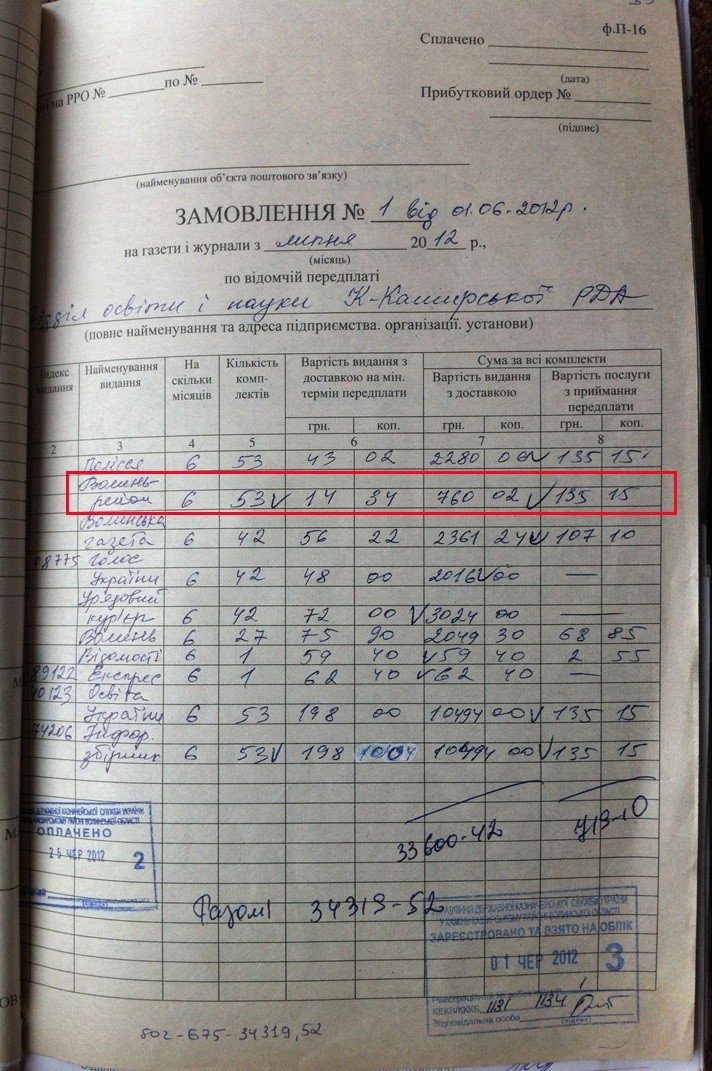 ф.П-16
Сплачено
(дата)
на РРО № по №
Прибутковий ордер №
(підпис)
(найменування об'єкта поштового зв'язку)
ЗАМОВЛЕННЯ № 1 від 01.06.2012р.
на газети і журнали з липня 2012 р.,
(місяць)
по відомчій передплаті
Відділ освіти і науки К-Каширської РДА
(повне найменування та адреса підприємства. організації. установи)
Індекс видання Найменування видання На скільки місяців Кількість комп-лектів Вартість видання з доставкою на мін. термін передплати Сума за всі комплекти
Вартість видання з доставкою Вартість послуги з приймання передплати
грн. коп. грн. коп. грн. коп.
2 3 4 5 6 7 8
Полісся 6 53 43 02 2280 06 135 15
Волинь-
район 6 53 14 34 760 02 135 15
Волинська
газета 6 42 56 22 2361 24 107 10
08775 Голос
України 6 42 48 00 2016 00 —
Урядовий
кур'єр 6 42 72 00 3024 00 —
Волинь 6 27 75 90 2049 30 68 85
Відомості 6 1 59 40 59 40 2 55
89122 Експрес 6 1 62 40 62 40 —
40123 Освіта
України 6 53 198 00 10494 00 135 15
74206 Інфор
збірник 6 53 198 00 10494 00 135 15
33600-42
ДЕРЖАВНОЇ КАЗНАЧЕЙСЬКОЇ СЛУЖБИ УКРАЇНИ
КАШИРСЬКОМУ РАЙОНІ ВОЛИНСЬКОЇ ОБЛАСТІ
ОПЛАЧЕНО
25 ЧЕР 2012 2
Разом: 34319-52
УПРАВЛІННЯ ДЕРЖАВНОЇ КАЗНАЧЕЙСЬКОЇ СЛУЖБИ УКРАЇНИ
У КАМІНЬ-КАШИРСЬКОМУ РАЙОНІ ВОЛИНСЬКОЇ ОБЛАСТІ
ЗАРЕЄСТРОВАНО ТА ВЗЯТО НА ОБЛІК
01 ЧЕР 2012 3
КЕКВ/ККБ 1131 1134
Відповідальна особа
(підпис)
802-675-34319,52